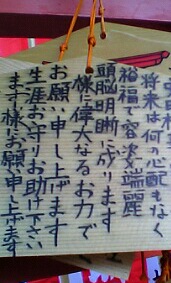 将来は何の心配もなく
裕福で容姿端麗
頭脳明晰に成ります
様に偉大なるお力で
お願い申し上げます
生涯お守りお助け下さい
ます様にお願い申し上げます